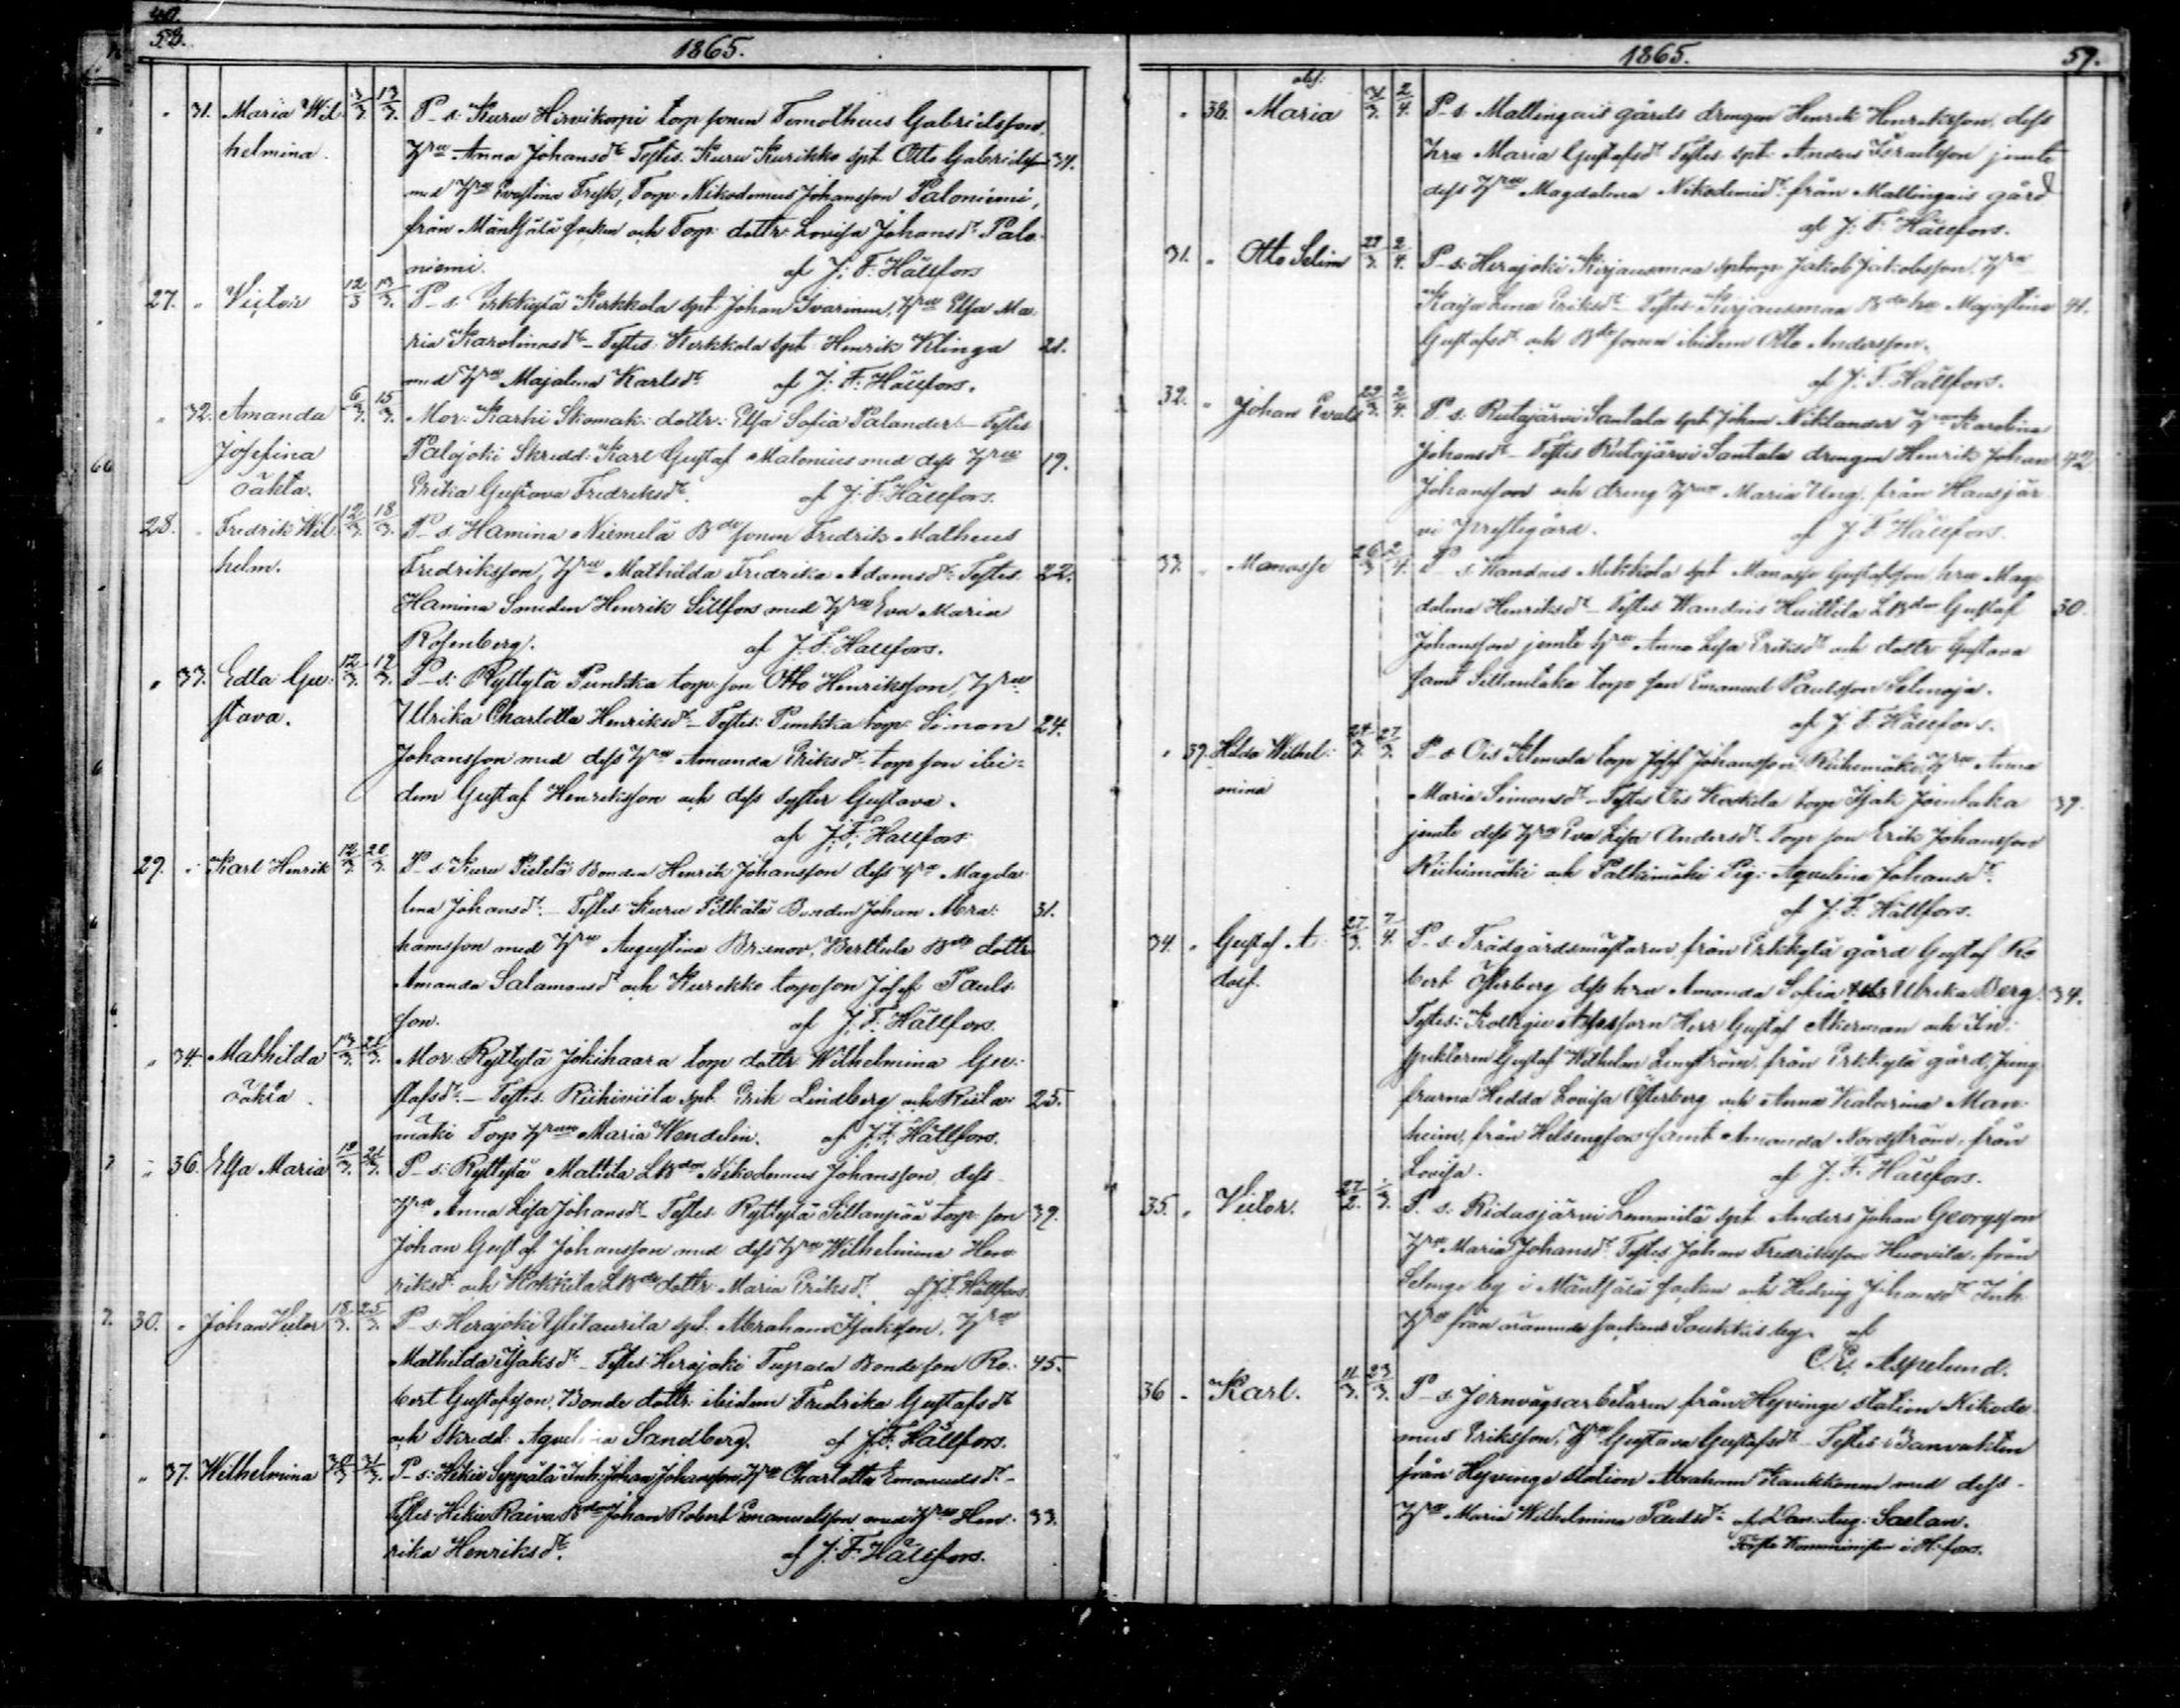 58.
1865.
31. Maria Wil- 3/3. 13/3. P-s: Kuru Hirvikorpi torp sonen Timotheus Gabrielsson,
helmina. Hru Anna Johansdr Testes. Kuru Kurikko spt. Otto Gabrielsson 34.
med Hru Evastina Frisk, Torp. Nikodemus Johansson Paloniemi,
från Mäntsälä socken och Torp. dottr. Lovisa Johansdr Palo-
niemi. af J. F. Hällfors
27. Victor 12/3 13/3. P-s. Erkkylä Kerkkola spt. Johan Ivarinen, Hru Elsa Ma-
ria Karolinasdr - Testes: Kerkkola spt. Henrik Klinga 21.
med Hru Majalena Karlsdr af J. F. Hällfors.
32. Amanda 6/3. 15/3. Mor: Karhi Skomak: dottr: Elsa Sofia Palander - Testes
Josefina Palojoki Skredd: Karl Gustaf Malonius med dess Hru 19.
oäkta. Erika Gustava Fredriksdr. af J. F. Hällfors.
28. Fredrik Wil- 12/3. 18/3. P-s. Hamina Niemelä Bde sonen Fredrik Matheus
helm. Fredriksson, Hru Mathilda Fredrika Adamsdr Testes. 22.
Hamina Smeden Henrik Sillfors med Hru Eva Maria
Rosenberg. af J. F. Hällfors.
33. Edla Gu- 12/3. 19/3. P-s: Ryttylä Punkka torp. son Otto Henriksson, Hru
stava. Ulrika Charlotta Henriksdr - Testes: Punkka torp. Simon 24.
Johansson med dess Hru Amanda Eriksdr torp son ibi-
dem Gustaf Henriksson och dess syster Gustava.
af J. F. Hällfors
29. Karl Henrik 12/3. 20/3. P-s: Kuru Pietilä Bonden Henrik Johansson dess Hru Magda-
lena Johansdr. - Testes: Kuru Pilkälä Bonden Johan Abra- 31.
hamsson med Hru Augustina Brusnov, Berttula Bde dottr
Amanda Salamonsdr och Kurekko torp son Josef Pauls-
son. af J. F. Hällfors.
34. Mathilda 13/3. 21/3. Mor. Ryttylä Jokihaara torp dottr Wilhelmina Gu-
oäkta. stafsdr. - Testes. Riihiviita spt. Erik Lindberg och Riila- 25.
mäki Torp Hrun Maria Wendelin. af J. F. Hällfors.
36. Elsa Maria P-s: Ryttylä Mattila LBdon Nikodemus Johansson, dess
Hru Anna Lisa Johansdr - Testes. Ryttylä Sillanpää torp. son 39.
Johan Gustaf Johansson med dess Hru Wilhelmina Hen-
riksdr och Kokkila LBde dottr. Maria Eriksdr. af J. F. Hällfors
30. Johan Victor 18/3. 25/3. P-s: Herajoki Ylitaurila spt. Abraham Isaksson, Hru
Mathilda Isaksdr - Testes. Herajoki Tupala Bonde son Ro- 45.
bert Gustafsson, Bonde dottr. ibidem Fredrika Gustafsdr
och Skredd. Sandberg. af J. F. Hällfors.
37. Wilhelmina 30/3 31/3. P-s: Hikiä Seppälä Inh: Johan Johansson, Hru Charlotta Emanuelsdr -
Testes. Hikiä Raiva Bdon Johan Robert Emanuelsson med Hru Hen- 33.
rika Henriksdr. af J. F. Hällfors.
1865. 59.
38. Maria 31/3. 2/4. P-s. Mallingais gårds drengen Henrik Henriksson, dess
hru Maria Gustafsdr Testes spt. Anders Israelsson jemte
dess Hru Magdalena Nikodemidr. från Mallingais gård
af J. F. Hällfors.
31. Otto Selim 28/3. 2/4. P-s. Herajoki Kirjausmaa sptorp Jakob Jakobsson, Hru
Kaisa Lena Eriksdr - Testes Kirjausmaa Bde hru Majastina 41.
Gustafsdr och Bde sonen ibidem Otto Andersson.
af J. F. Hällfors.
32. Johan Evald 29/3. 2/4. P-s: Ridasjärvi Santala spt. Johan Niklander Hru Karolina
Johansdr - Testes Ridasjärvi Santala drengen Henrik Johan 42
Johansson och dreng Hrun Maria Ung, från Hausjär-
vi prestegård. af J. F. Hällfors.
33. Manasse 26/3 2/4. P-s. Wandais Mikkola spt Manasse Gustafsson hru Mag-
dalena Henriksdr - Testes Wandais Huittila LBdon Gustaf 30.
Johansson jemte Hru Anna Lisa Eriksdr och dottr Gustava
samt Sillanlaka torp son Emanuel Paulsson Salinoja.
af J. F. Hällfors.
39. Hilda Wilhel- 24/3. 27/3. P-s. Ois Klemola torp Josef Johansson Riihimäki, Hru Anna
mina Maria Simonsdr - Testes Ois Koskela torp Isak Jounlaka 39.
jemte dess Hru Eva Lisa Andersdr. Torp son Erik Johansson
Riihimäki och Palkimäki Pig: Aqvelina Johansdr.
af J. F. Hällfors.
34. Gustaf A- 27/3. 7/4. P-s: Trädgårdsmästaren från Erkkylä gård Gustaf Ro-
dolf. bert Österberg dess hru Amanda Sofia Ulrika Berg. 34.
Testes: Kollegie Assessorn Herr Gustaf Åkerman och In-
spektoren Gustaf Wilhelm Lindström, från Erkkylä gård, Jung-
frurna Hedda Lovisa Österberg och Anna Katarina Man-
heim, från Helsingfors samt Amanda Nordström, från
Lovisa. af J. F. Hällfors.
35. Victor. 27/2. P. s. Ridasjärvi Lemmilä spt. Anders Johan Georgsson
Hru Maria Johansdr. Testes. Johan Fredriksson Huovila från
Selinge by i Mäntsälä socken och Hedvig Johansdr Inh.
Hru från nämnde sockens Soukkis by. af
Aspelund.
36 Karl. 11/3. 23/3. P-s Jernvägsarbetaren från Hyvinge station Nikode-
mus Eriksson, Hru Gustava Gustafsdr - Testes: Banvakten
från Hyvinge station Abraham Kankkonen med dess
Hru Maria Wilhelmina Paulsdr. af Dan. Aug: Saelan.
Förste Kommunister i H:fors.